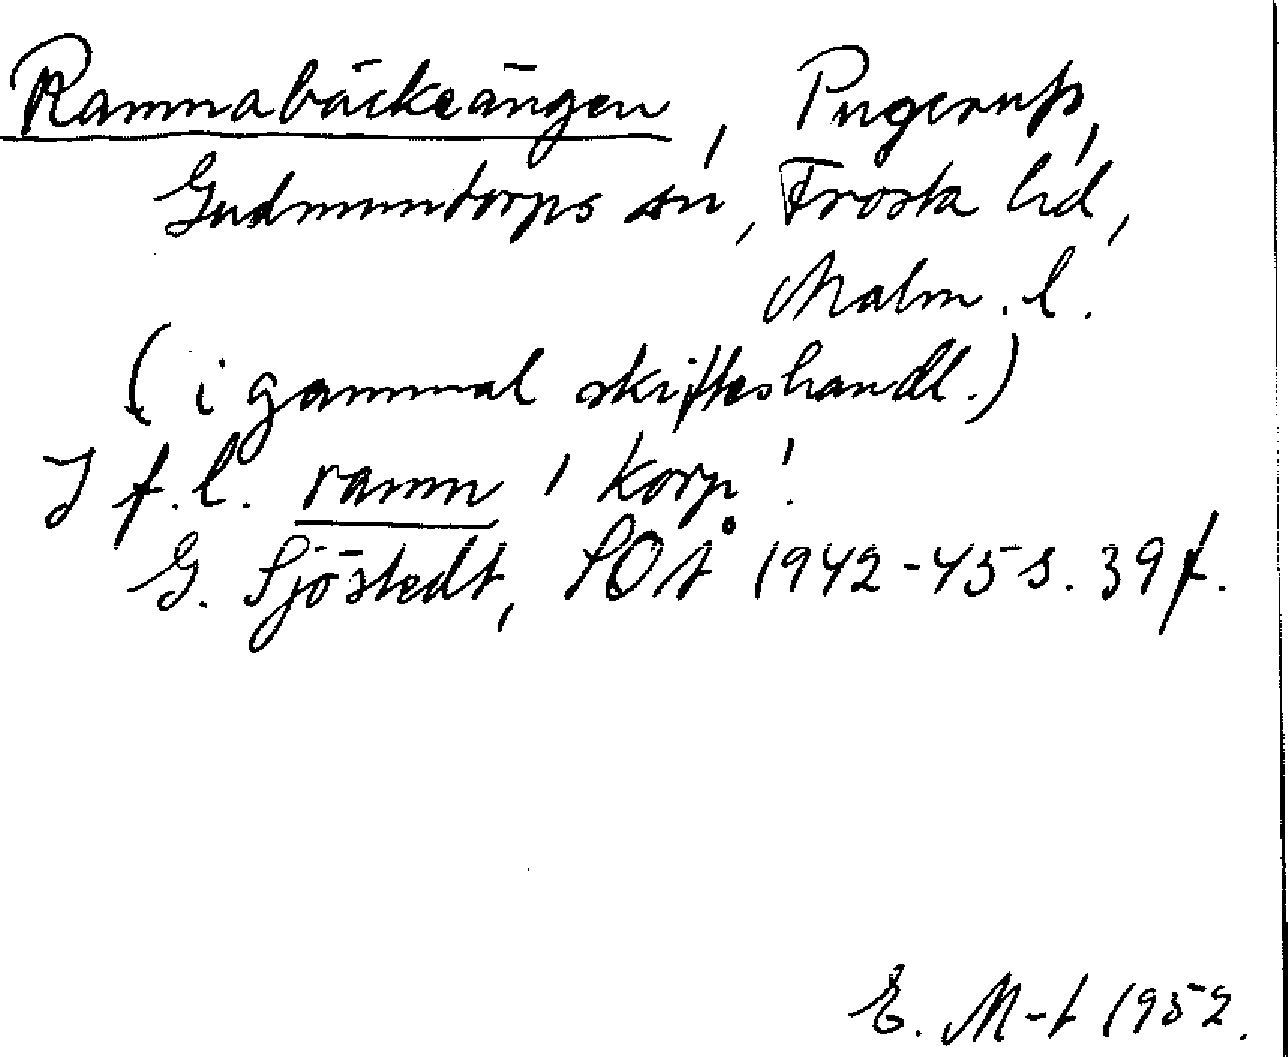 Ramnabäckeängen, Pugerup,
Gudmuntorps sn, Frosta hd,
Malm. l.
(i gammal skifteshandl.)
I f.l. ramn 'korp'.
G. Sjöstedt, SOÅ 1942-45 s. 39 f.
E. M-t 1952.